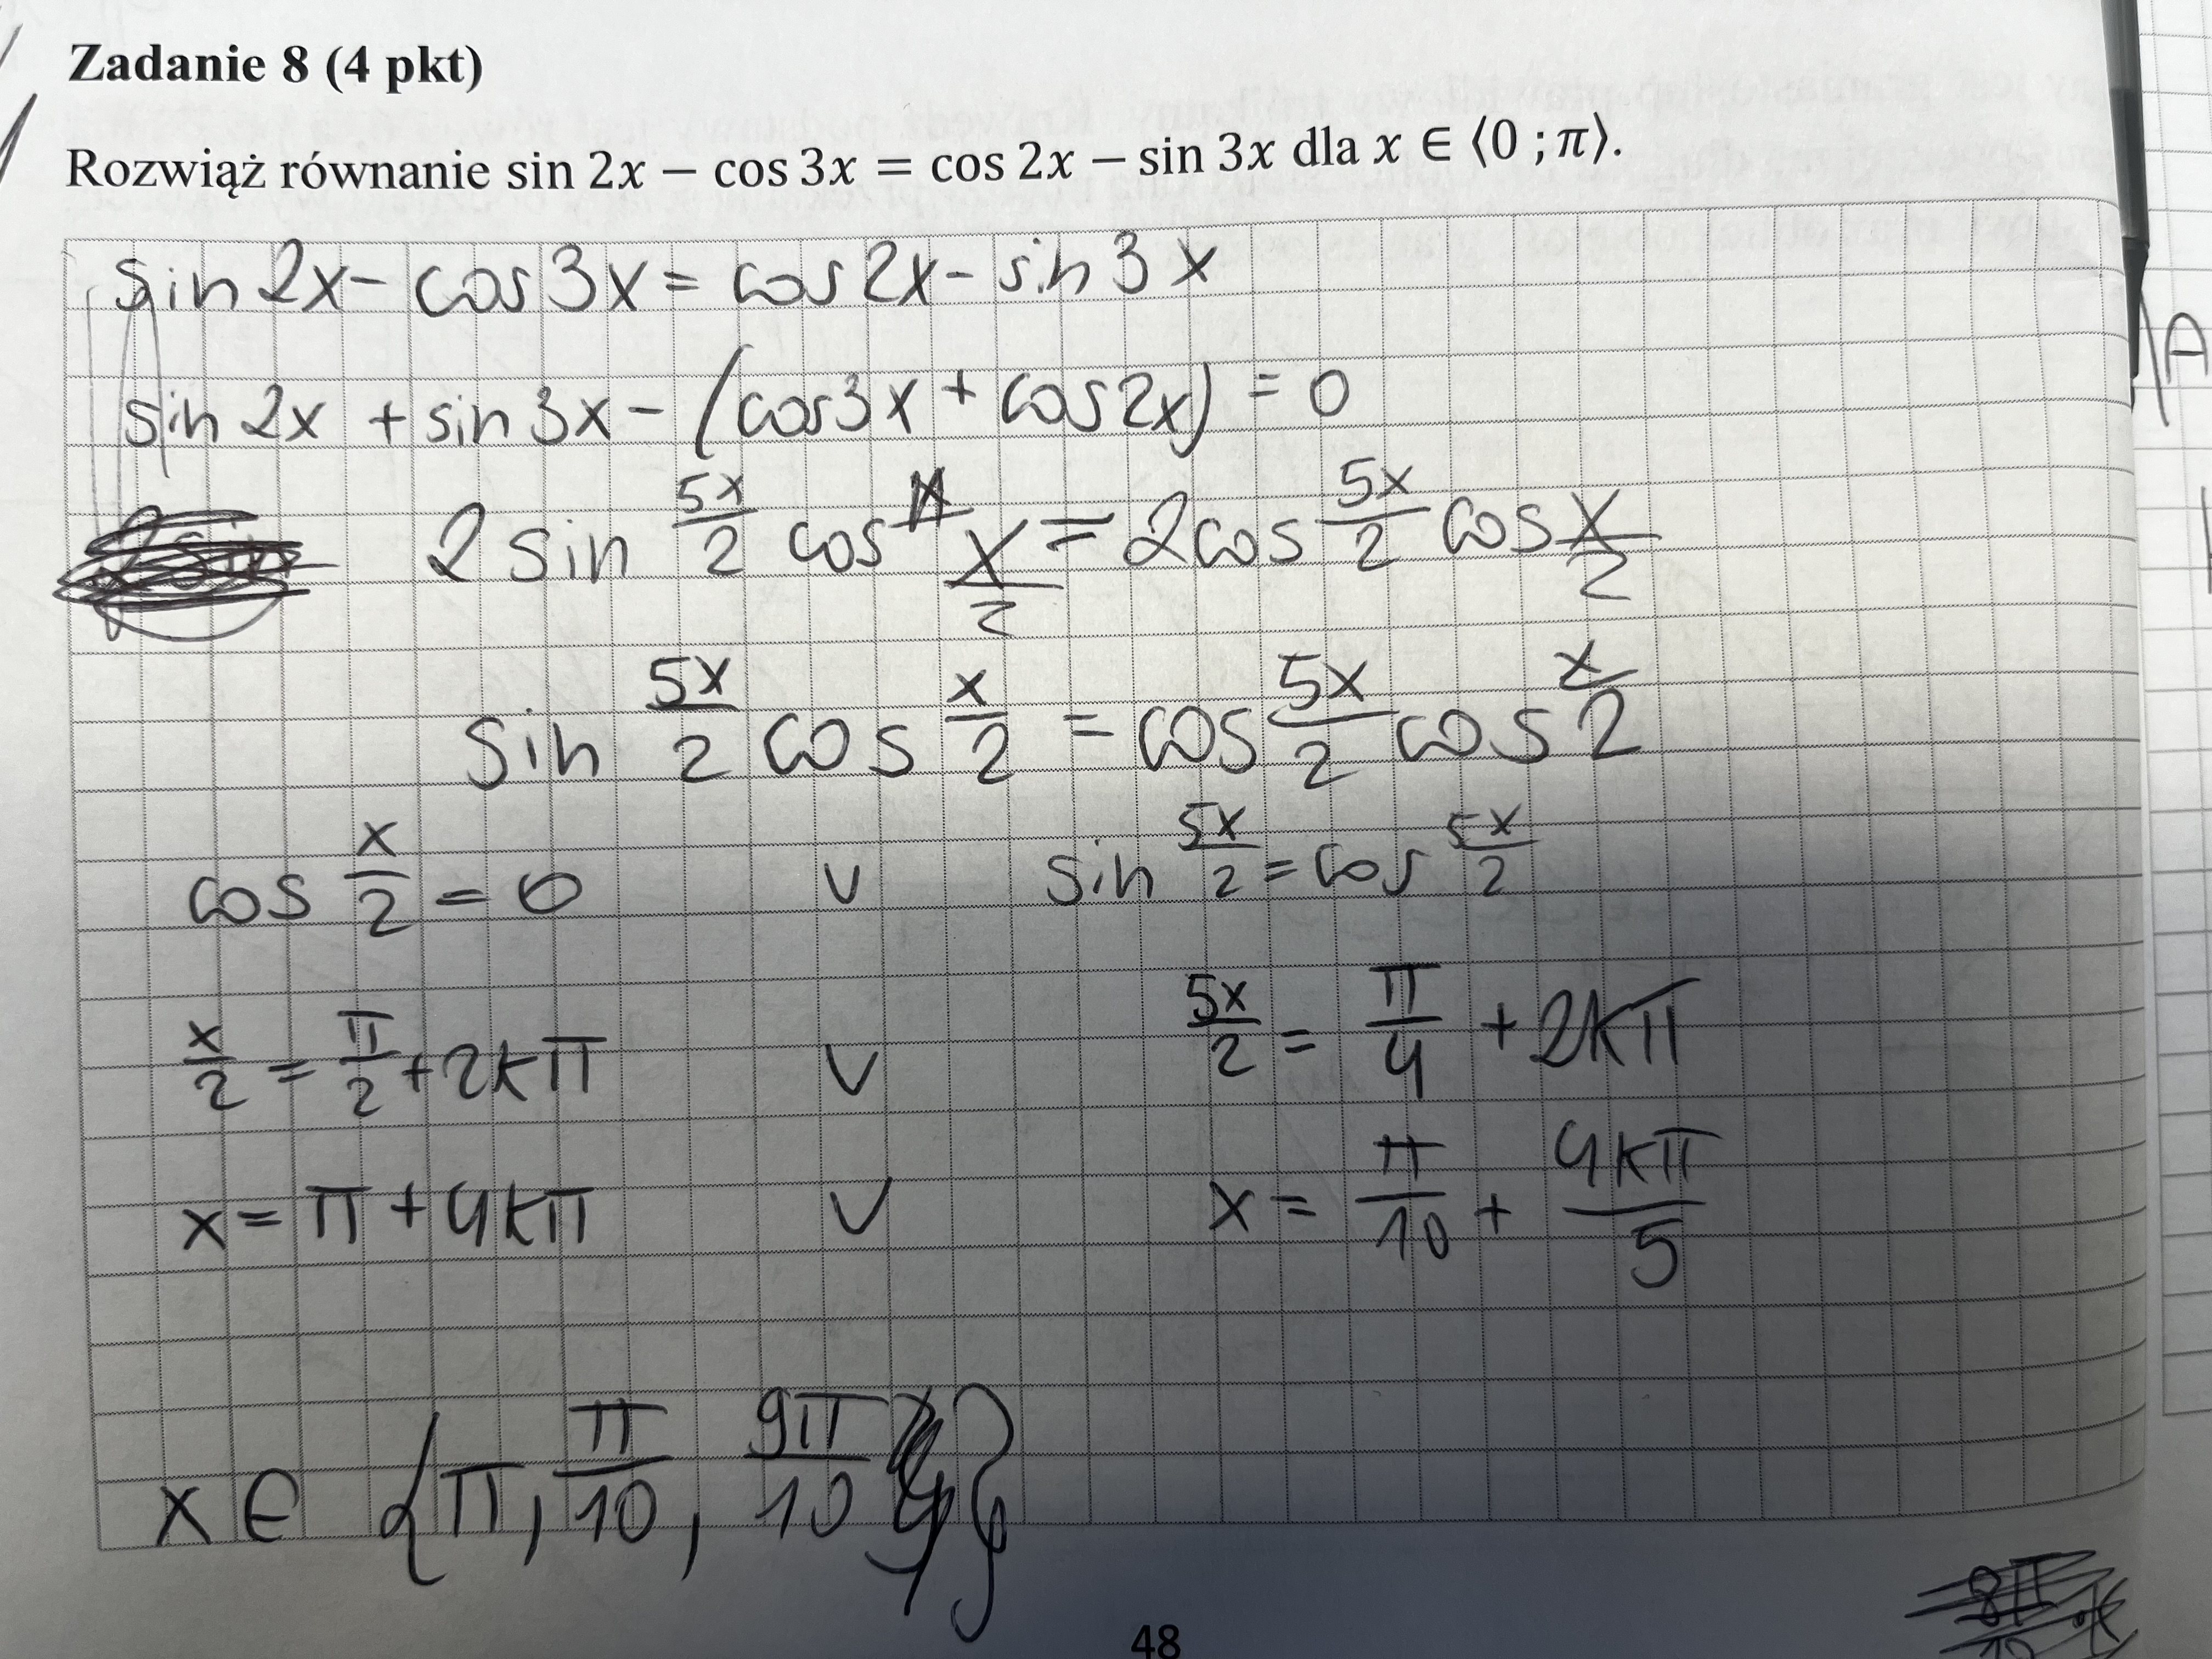 Zadanie 8 (4 pkt)
Rozwiąż równanie sin 2x − cos 3x = cos 2x − sin 3x dla x ∈ ⟨0 ; π⟩.
sin 2x - cos 3x = cos 2x - sin 3x
sin 2x + sin 3x - (cos 3x + cos 2x) = 0
2 sin 5x/2 cos x/2 = 2 cos 5x/2 cos x/2
sin 5x/2 cos x/2 = cos 5x/2 cos x/2
cos x/2 = 0 ∨ sin 5x/2 = cos 5x/2
x/2 = π/2 + 2kπ ∨ 5x/2 = π/4 + 2kπ
x = π + 4kπ ∨ x = π/10 + 4kπ/5
x ∈ {π, π/10, 9π/10}
48
A